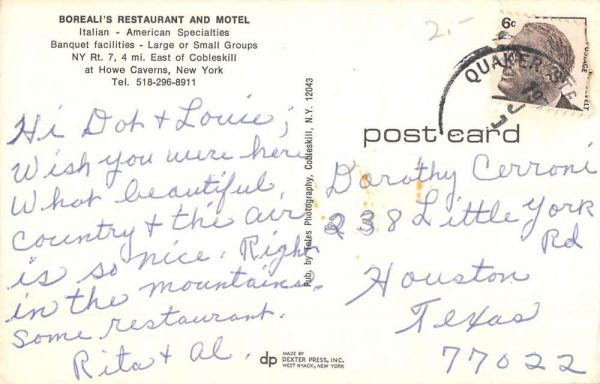 BOREALI'S RESTAURANT AND MOTEL
Italian - American Specialties
Banquet facilities - Large or Small Groups
NY Rt. 7, 4 mi. East of Cobleskill
at Howe Caverns, New York
Tel. 518-296-8911
Hi Dot & Louie;
Wish you were here
What beautiful
country & the air
is so nice. Right
in the mountains.
Some restaurant.
Rita & Al.
Pub. by Yates Photography, Cobleskill, N.Y. 12043
dp MADE BY
DEXTER PRESS, INC.
WEST NYACK, NEW YORK
2.-
6c
POSTAGE
QUAKER
post card
Dorothy Cerroni
238 Little York
Rd
Houston
Texas
77022